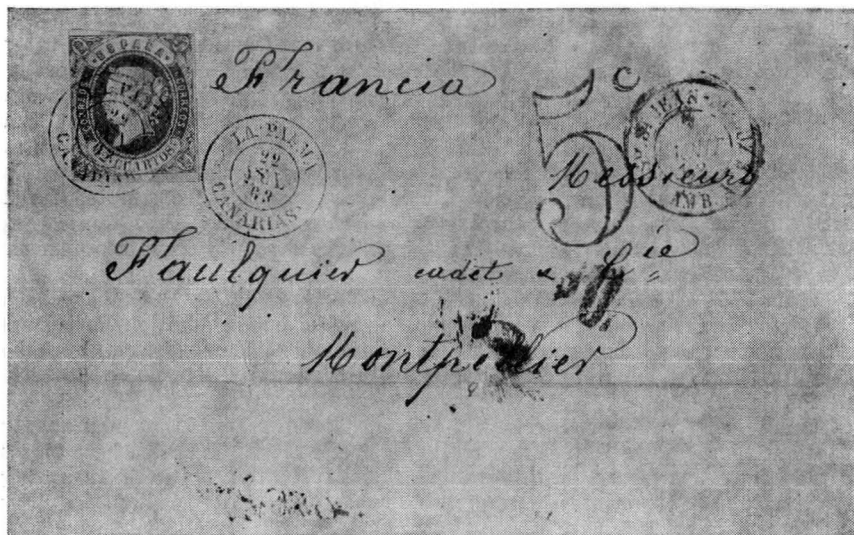 ESPAÑA
Francia
LA PALMA
22
JUL
63
CANARIAS
5c
Messieurs
AMB
Faulquier cadet & Cie
Montpellier